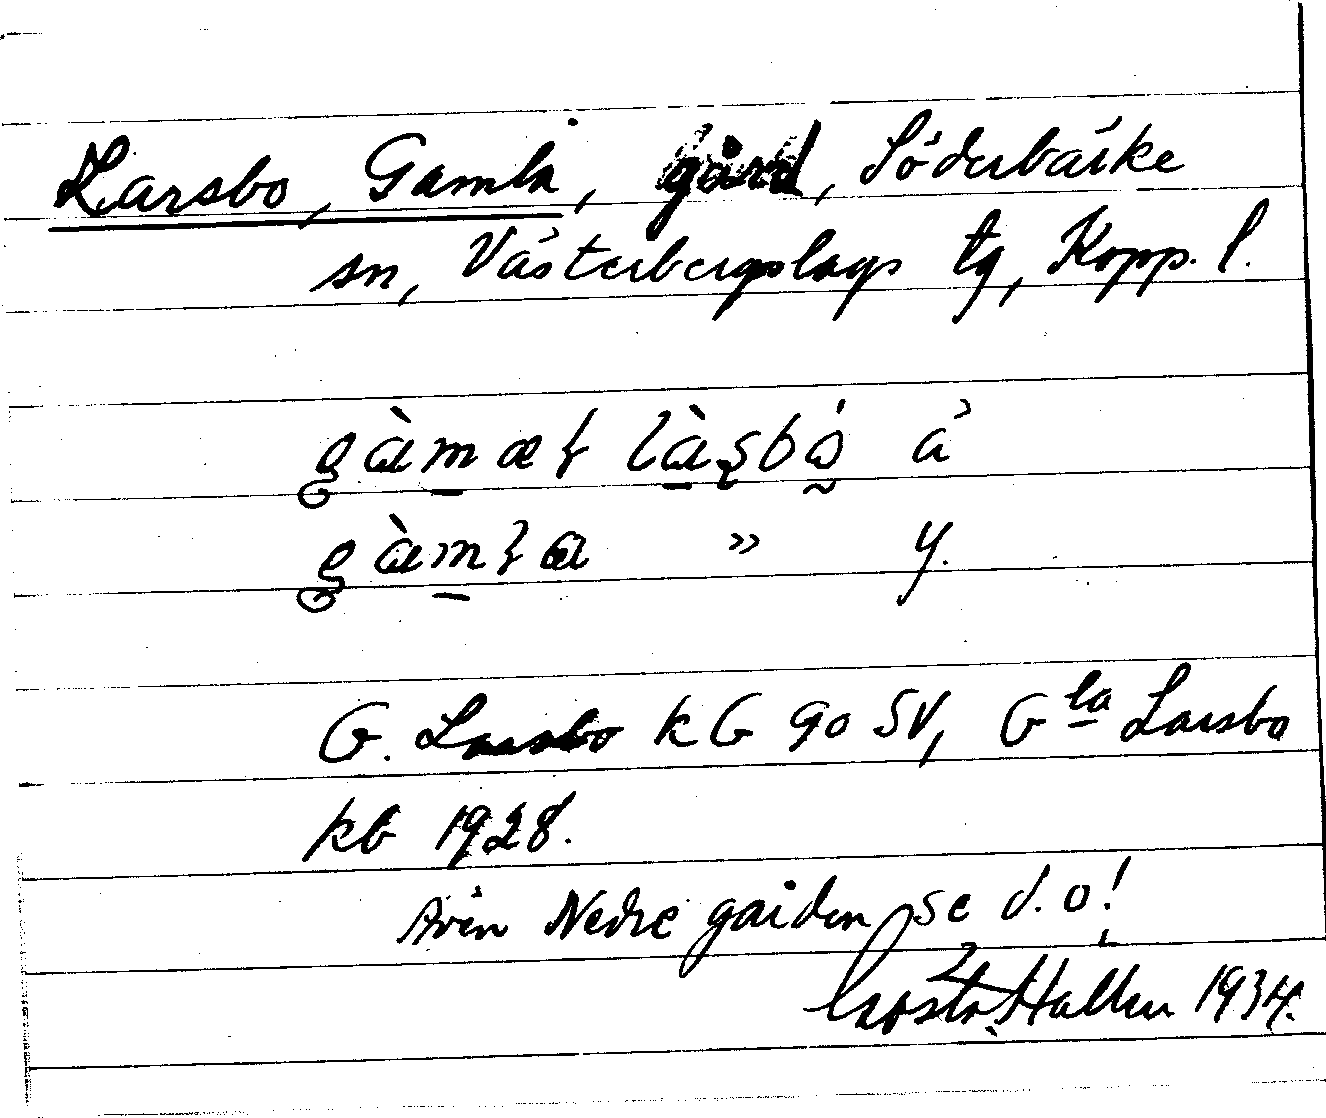 Larsbo, Gamla, gård, Söderbärke
sn, Västerbergslags tg, Kopp. l.
gàmæł làʂbò̰ ä
gàmła » y.
G. Larsbo kG 90 SV, Gla Larsbo
kb 1928.
Även Nedre gården se d. o!
Gösta Hallén 1934.